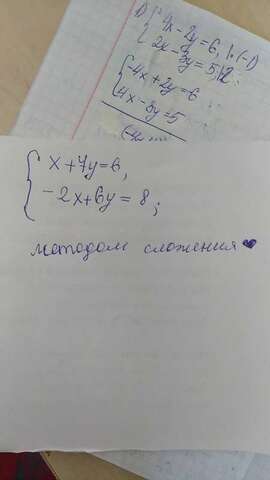 1) { 4x - 2y = 6, | · (-1)
2x - 3y = 5, | 2
{ -4x + 2y = -6
4x - 3y = 5
{ x + 7y = 6,
-2x + 6y = 8;
методом сложения